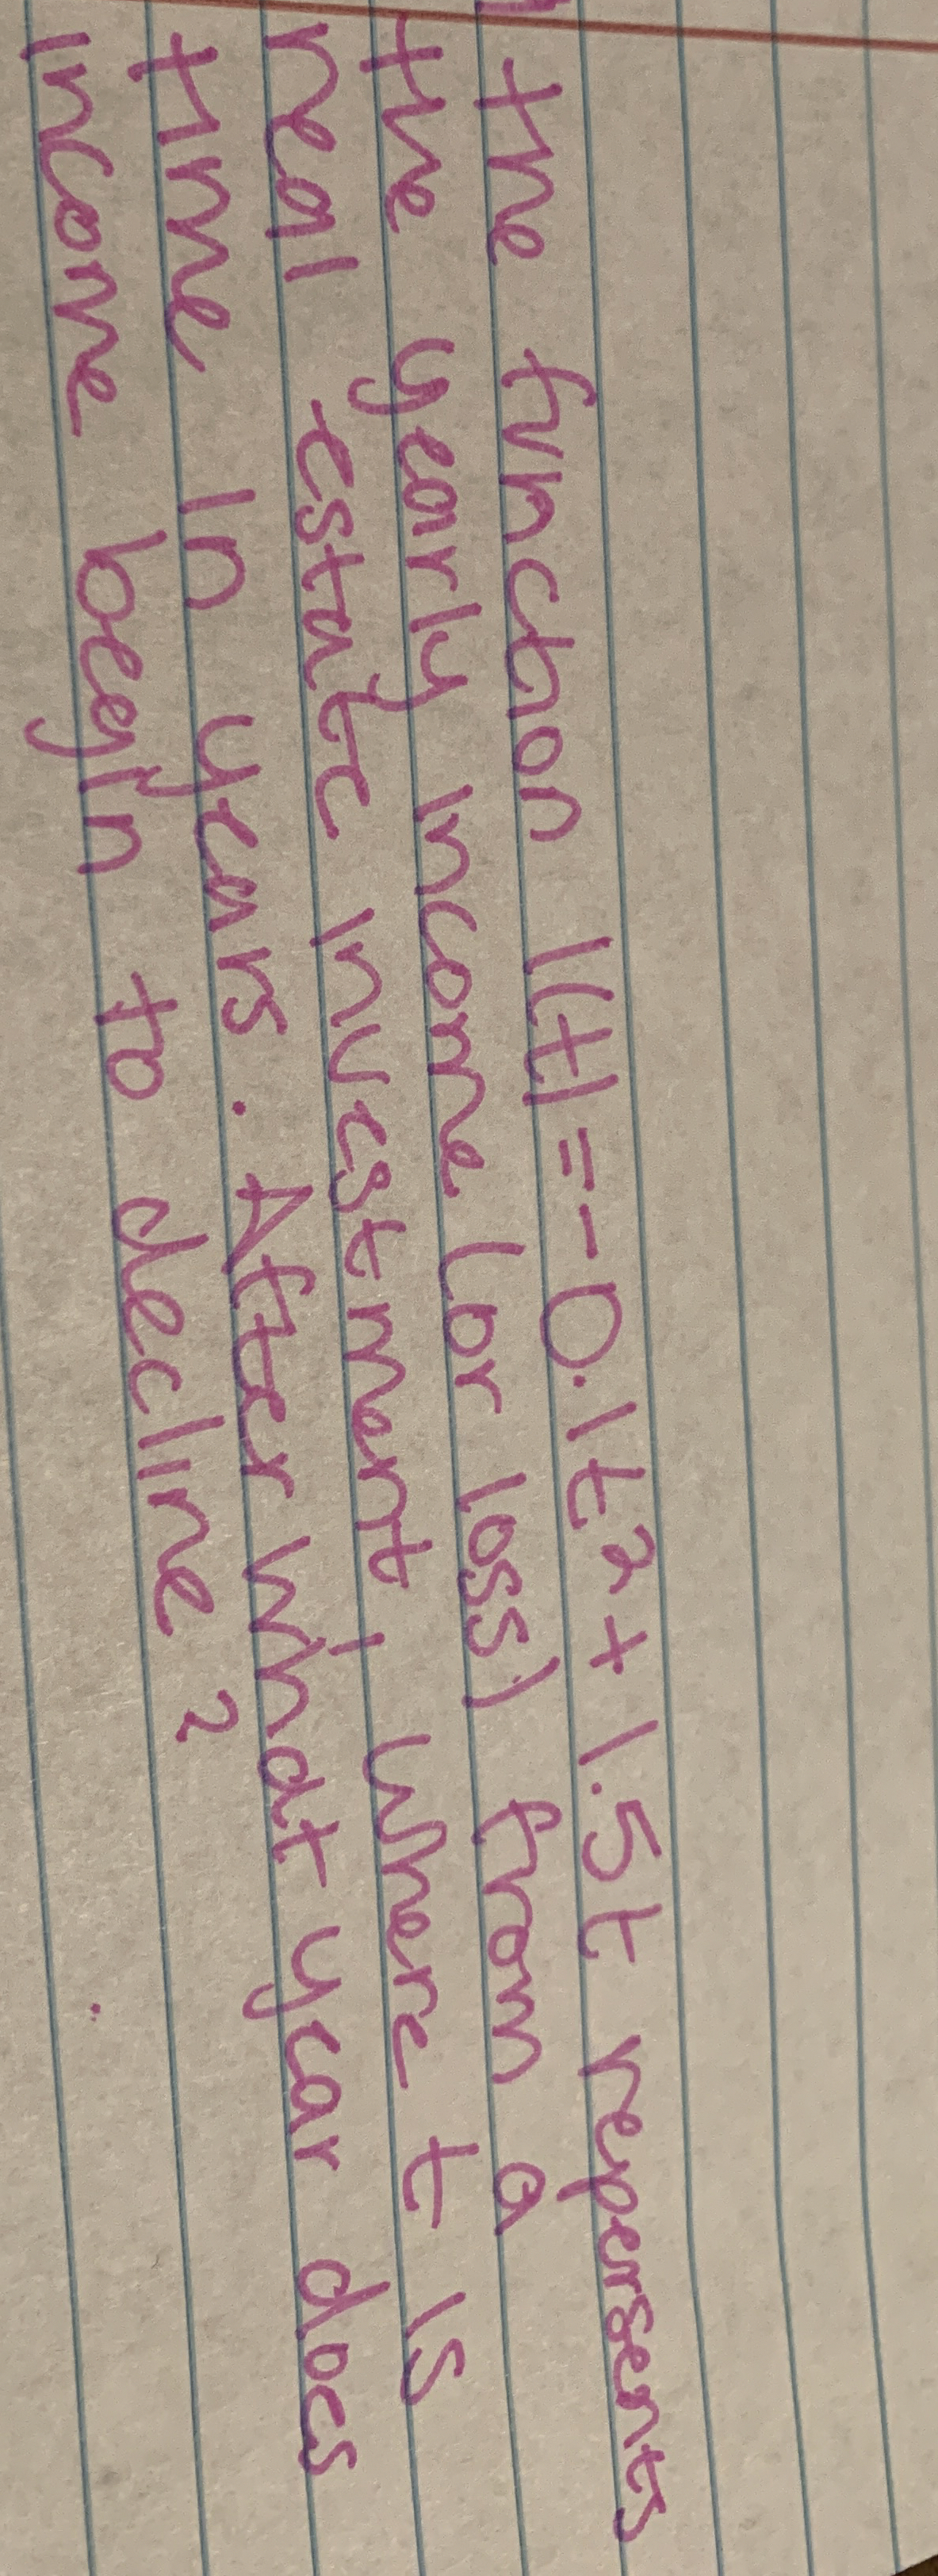 the function I(t) = - 0.1t² + 1.5t repersents
the yearly income (or loss) from a
real estate investment, where t is
time in years. After what year does
income begin to decline?